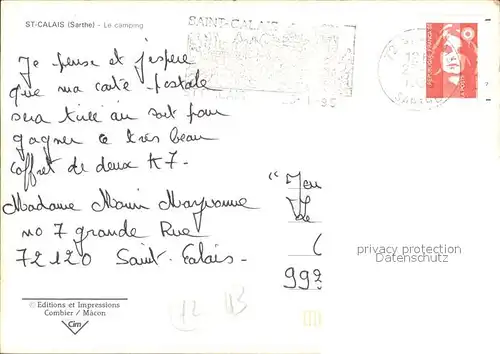 ST-CALAIS (Sarthe) - Le camping
SAINT-CALAIS
Je pense et j'espère
que ma carte postale
sera tirée au sort pour
gagner ce très beau
coffret de deux K7.
Madame Morin Maryvonne
no 7 grande Rue
72120 Saint-Calais -
" Jeu
Le
992
privacy protection
Datenschutz
© Editions et Impressions
Combier / Mâcon
Cim